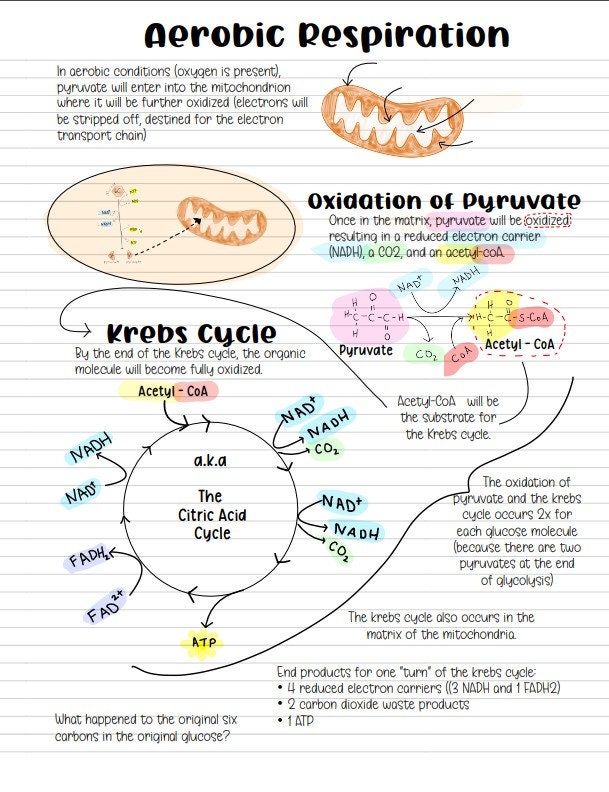 Aerobic Respiration
In aerobic conditions (oxygen is present),
pyruvate will enter into the mitochondrion
where it will be further oxidized (electrons will
be stripped off, destined for the electron
transport chain)
Oxidation of Pyruvate
Once in the matrix, pyruvate will be oxidized
resulting in a reduced electron carrier
(NADH), a CO2, and an acetyl-coA.
NAD+
NADH
H O
H-C-C-C-H
H
Pyruvate
CO2
CoA
H O
H-C-C-S-CoA
H
Acetyl - CoA
Krebs Cycle
By the end of the Krebs cycle, the organic
molecule will become fully oxidized.
Acetyl-CoA will be
the substrate for
the Krebs cycle.
Acetyl - CoA
NAD+
NADH
CO2
NADH
NAD+
a.k.a
The
Citric Acid
Cycle
NAD+
NADH
CO2
FADH2
FAD2+
ATP
The oxidation of
pyruvate and the krebs
cycle occurs 2x for
each glucose molecule
(because there are two
pyruvates at the end
of glycolysis)
The krebs cycle also occurs in the
matrix of the mitochondria.
End products for one "turn" of the krebs cycle:
• 4 reduced electron carriers ((3 NADH and 1 FADH2)
• 2 carbon dioxide waste products
• 1 ATP
What happened to the original six
carbons in the original glucose?